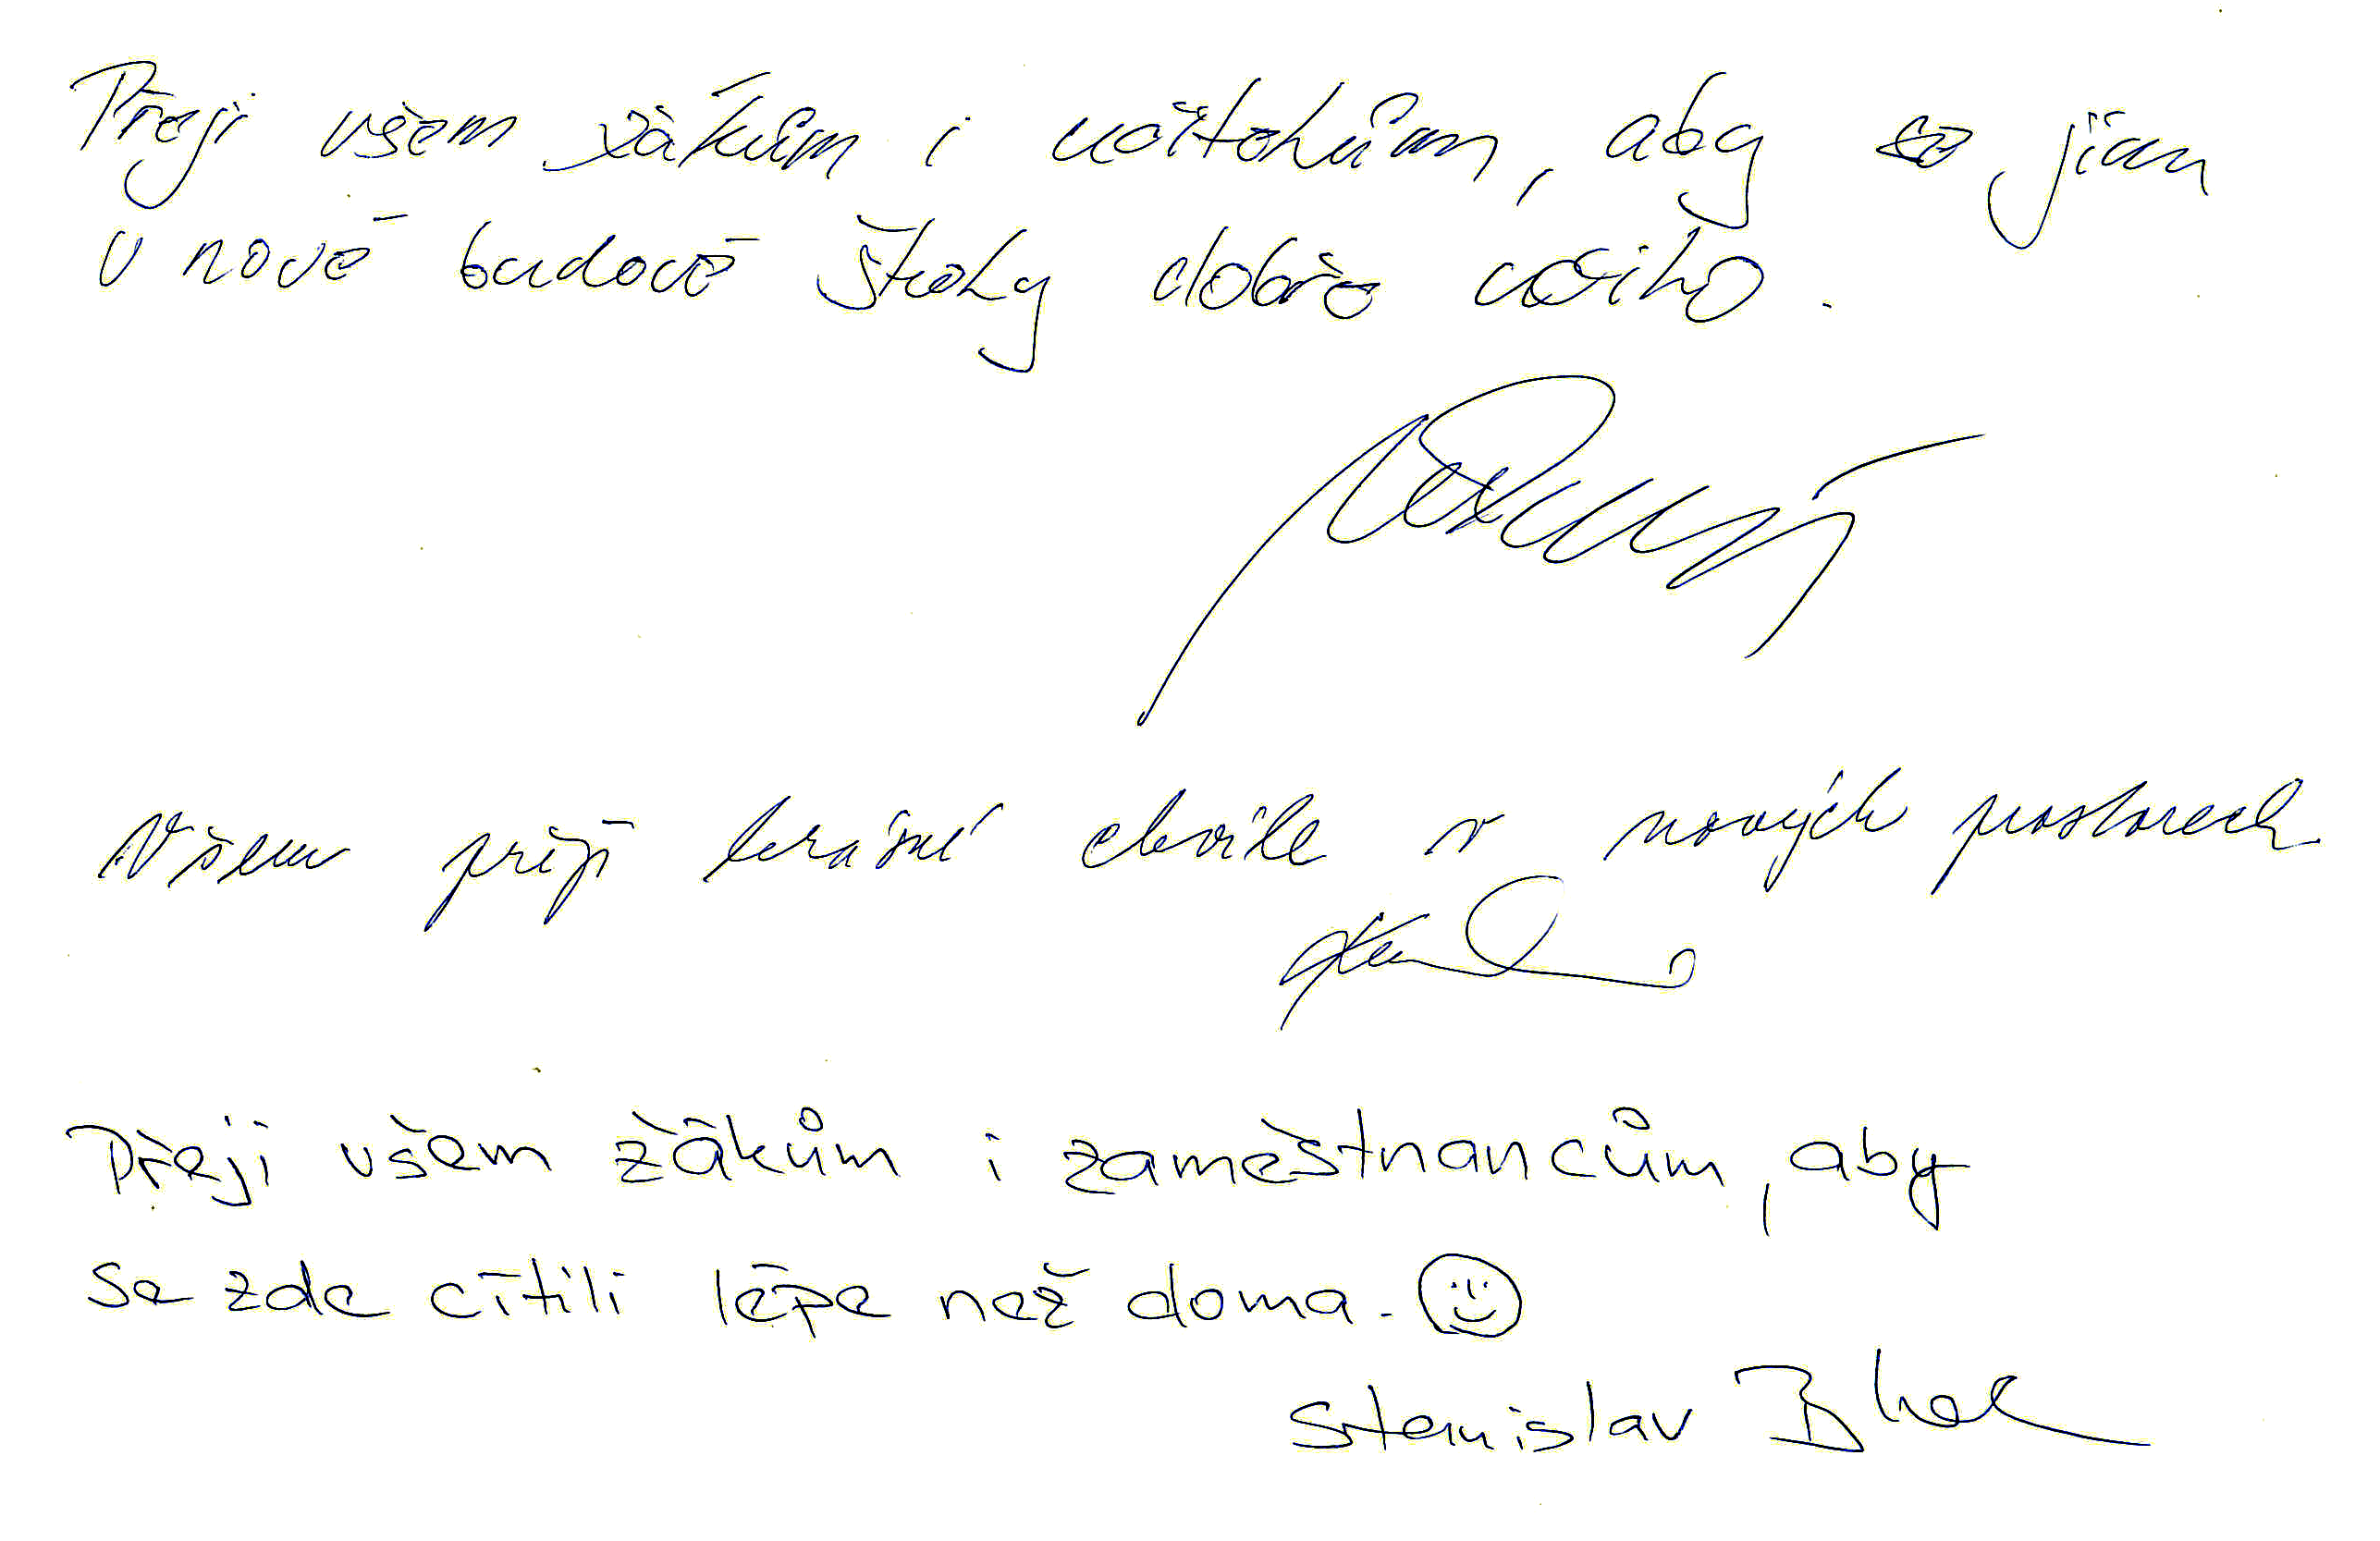 Přeji všem žákům i učitelům, aby se jim
v nové budově školy dobře učilo.
Všem přeji krásné chvíle v nových prostorech
Přeji všem žákům i zaměstnancům, aby
se zde cítili lépe než doma. ☺
Stanislav